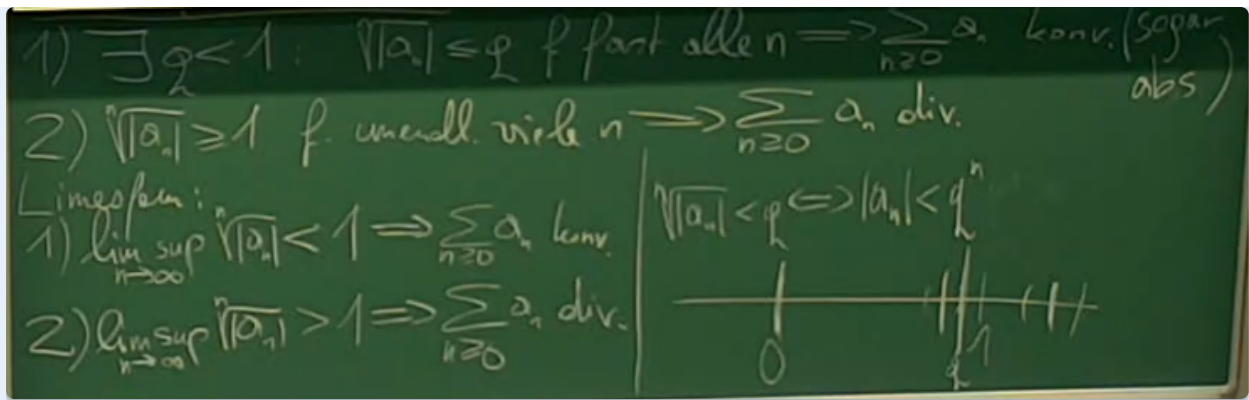 1) ∃ q < 1 : ⁿ√|aₙ| ≤ q f fast alle n ⟹ ∑_{n≥0} aₙ konv. (sogar
abs)
2) ⁿ√|aₙ| ≥ 1 f. unendl. viele n ⟹ ∑_{n≥0} aₙ div.
Limesform:
1) lim sup_{n→∞} ⁿ√|aₙ| < 1 ⟹ ∑_{n≥0} aₙ konv.
2) lim sup_{n→∞} ⁿ√|aₙ| > 1 ⟹ ∑_{n≥0} aₙ div.
ⁿ√|aₙ| < q ⟺ |aₙ| < qⁿ
0 q 1